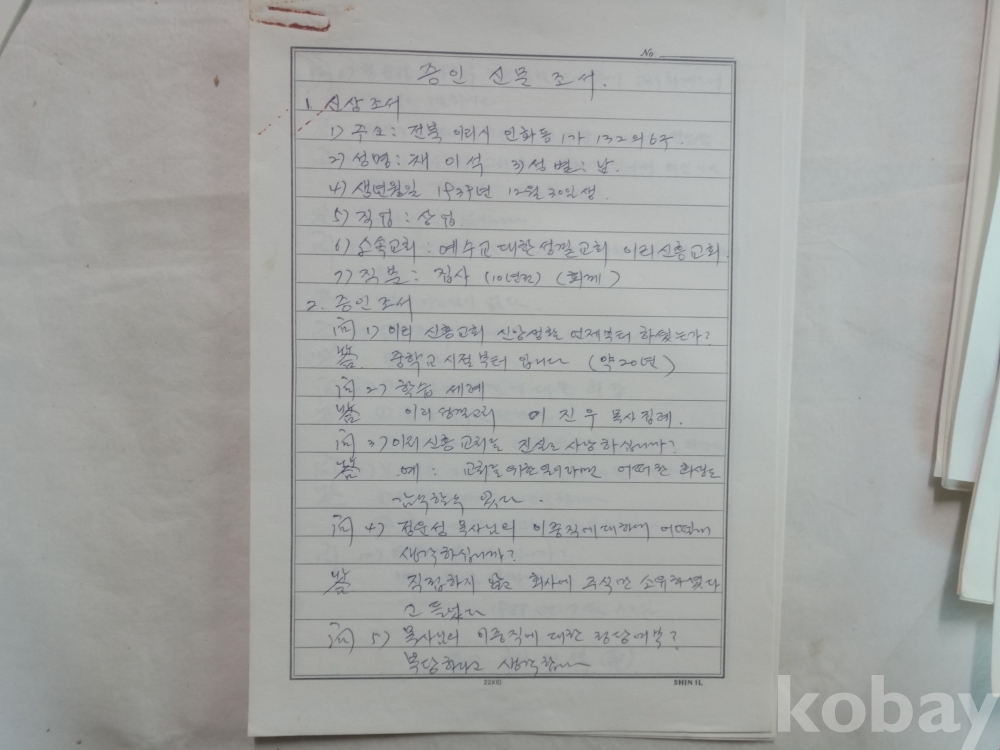 No
증인 신문 조서.
1. 신상조서
1) 주소: 전북 이리시 인화동 1가 132의 6구.
2) 성명: 채 이 석 3) 성별: 남.
4) 생년월일 1939년 12월 30일생.
5) 직업: 상업
6) 소속교회: 예수교대한성결교회 이리신흥교회.
7) 직분: 집사 (10년전) (회계)
2. 증인조서
問 1) 이리 신흥교회 신앙생활 언제부터 하였는가?
答 중학교시절부터 입니다 (약20년)
問 2) 학습 세례
答 이리성결교회 이 진 우 목사집례.
問 3) 이리신흥교회를 진실로 사랑하십니까?
答 예: 교회를 위한 일이라면 어떠한 희생도
감수할수 있다.
問 4) 정운성 목사님의 이중직에대하여 어떻게
생각하십니까?
答 직접하지 않고 회사에 주식만 소유하였다
고 들었다
問 5) 목사님의 이중직에 대한 정당여부?
부당하다고 생각합니다
22X10
SHIN IL
kobay